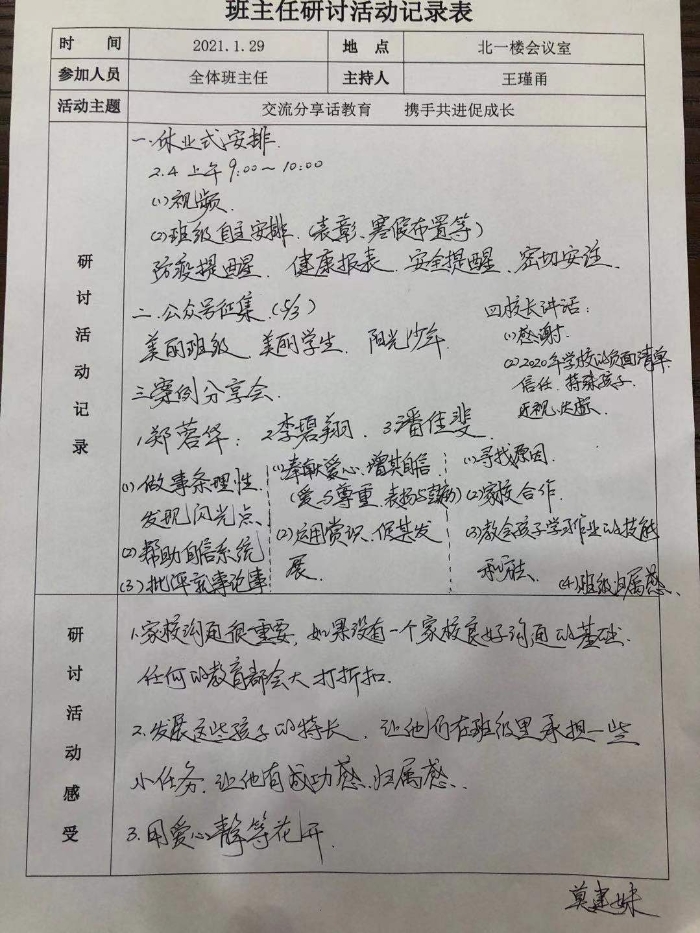 班主任研讨活动记录表
时 间 2021.1.29 地 点 北一楼会议室
参加人员 全体班主任 主持人 王瑾甬
活动主题 交流分享话教育 携手共进促成长
研讨活动记录
一.休业式安排.
2.4 上午 9:00~10:00
(1)视频.
(2)班级自主安排.(表彰、寒假布置等)
防疫提醒. 健康报表. 安全提醒.
二.公众号征集(5/3)
美丽班级. 美丽学生. 阳光少年.
四校长讲话:
(1)感谢.
(2)2020年学校的负面清单
信任. 特殊孩子.
近视.
三案例分享会.
1.郑蓉华: 2.李碧翔. 3.潘佳斐.
(1)做事条理性.
发现闪光点.
(2)帮助自信系统
(3)批评就事论事
(1)奉献爱心.增其自信
(爱与尊重.表扬与鼓励)
(2)运用赏识.促其发
展.
(1)寻找原因.
(2)家校合作.
(3)教会孩子学习作业的技能
和方法.
(4)班级归属感.
研讨活动感受
1.家校沟通很重要,如果没有一个家校良好沟通的基础.
任何的教育都会大打折扣.
2.发展这些孩子的特长.让他们在班级里承担一些
小任务.让他有成功感.归属感.
3.用爱心静等花开.
莫建妹